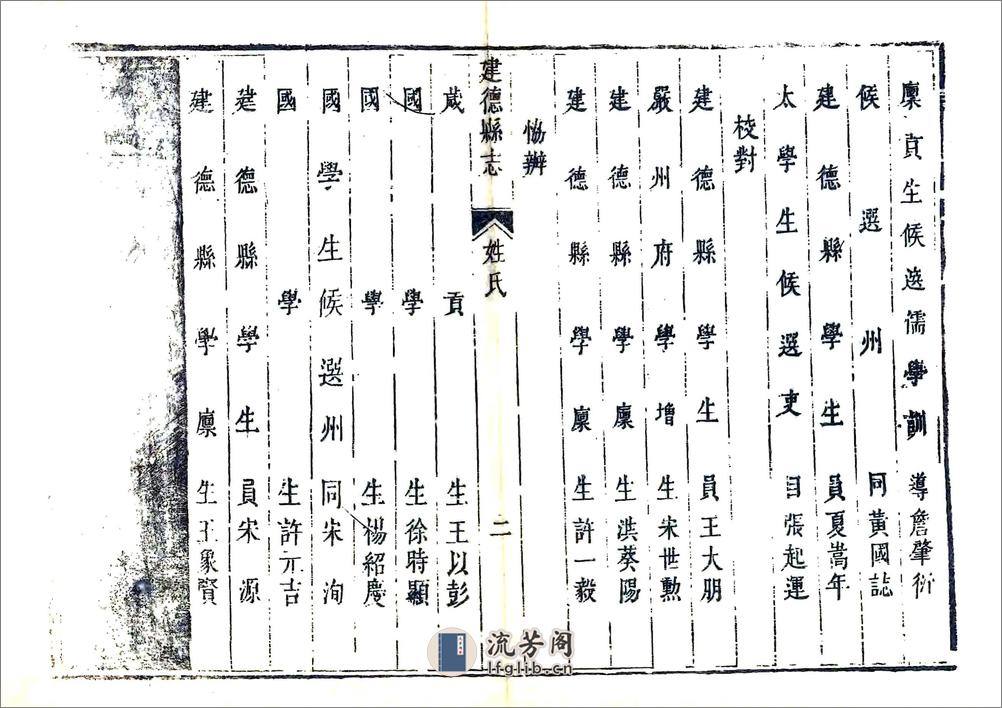 廩貢生候選儒學訓導詹肇衍
候選州同黃國誌
建德縣學生員夏嵩年
太學生候選吏目張起運
校對
建德縣學生員王大朋
嚴州府學增生宋世勲
建德縣學廩生洪葵陽
建德縣學廩生許一毅
協辦
建德縣志 姓氏 二
歲貢生王以彭
國學生徐時顯
國學生楊紹慶
國學生候選州同宋洵
國學生許元吉
建德縣學生員宋源
建德縣學廩生王象賢
流芳阁
lfglib.cn